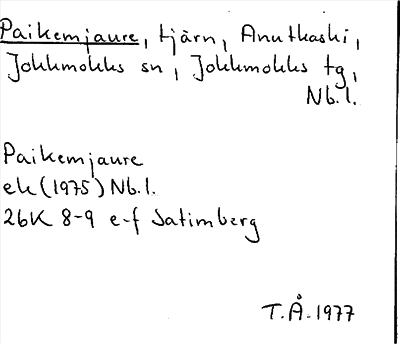 Paikemjaure, tjärn, Anutkaski,
Jokkmokks sn, Jokkmokks tg,
Nb.l.
Paikemjaure
ek (1975) Nb.l.
26K 8-9 e-f Satimberg
T.Å. 1977